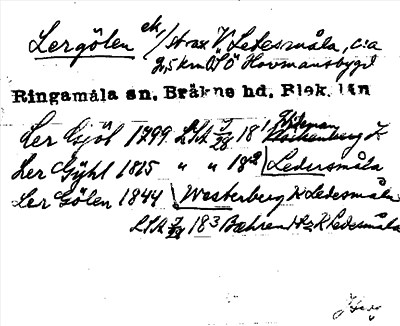 Lergölen ek, / strax V Ledesmåla, c:a
2,5 km OSÖ Hovmansbygd
Ringamåla sn, Bräkne hd, Blek. län
Ler Gjöl 1799 LSA 7/28 18¹ Klockenberg K.
Ler Gyhl 1815 " " 18² Ledersmåla
Ler Gölen 1844 Westerberg K Ledesmåla
LSA 7/28 18³ Bæhrendtz K Ledesmåla